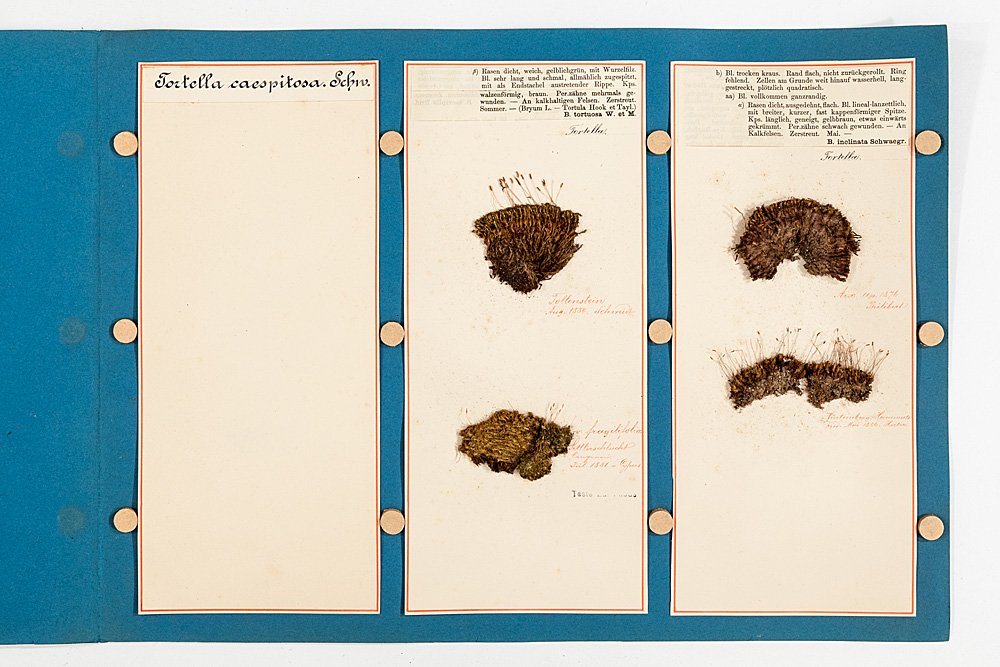 Tortella caespitosa. Schw.
β) Rasen dicht, weich, gelblichgrün, mit Wurzelfilz.
Bl. sehr lang und schmal, allmählich zugespitzt,
mit als Endstachel austretender Rippe. Kps.
walzenförmig, braun. Per.zähne mehrmals ge-
wunden. — An kalkhaltigen Felsen. Zerstreut.
Sommer. — (Bryum L. — Tortula Hook et Tayl.)
B. tortuosa W. et M.
Tortella.
Tollenstein
Aug. 1886. Schmidt
v. fragilifolia
Juil. 1881 -
b) Bl. trocken kraus. Rand flach, nicht zurückgerollt. Ring
fehlend. Zellen am Grunde weit hinauf wasserhell, lang-
gestreckt, plötzlich quadratisch.
aa) Bl. vollkommen ganzrandig.
α) Rasen dicht, ausgedehnt, flach. Bl. lineal-lanzettlich,
mit breiter, kurzer, fast kappenförmiger Spitze.
Kps. länglich, geneigt, gelbbraun, etwas einwärts
gekrümmt. Per.zähne schwach gewunden. — An
Kalkfelsen. Zerstreut. Mai. —
B. inclinata Schwaegr.
Tortella.
1876
Mai 1886.